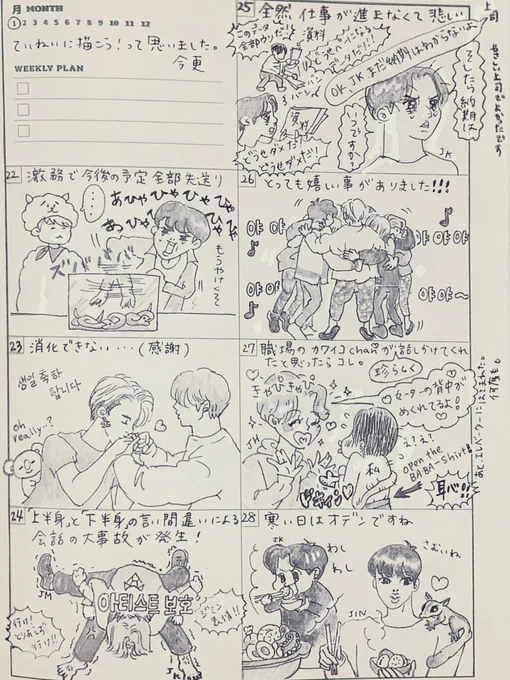 月 MONTH
① 2 3 4 5 6 7 8 9 10 11 12
ていねいに描こう!って思いました。
今更
WEEKLY PLAN
22 激務で今後の予定全部先送り
...
あひゃひゃひゃひゃひゃ
もうやけくそ
23 消化できない...(感謝)
생일 축하
합니다
oh
really..?
24 「上半身」と「下半身」の言い間違いによる
会話の大事故が発生!
JM
아티스트 보호
JK
25 全然 仕事が進まなくて悲しい
資料
OK、JK まだ納期はわからないよ
そしたら納期は
いつですか?
資料
どうせダメだ!
JK
上司 やさしい上司でよかったです
26 とっても嬉しい事がありました!!!
야 야 야
야 야 야
야 야~
27 職場のカワイコchanが話しかけてくれ
たと思ったらコレ。
珍らしく
きゃぴきゃぴ
セーターの背中が
めくれてるよ!
JH
え?え?
私
open the
BABA-Shirt!
あと、エレベーターにはさまれた。
何度も。
28 寒い日はオデンですね
JK
わし
わし
さむいね
JIN